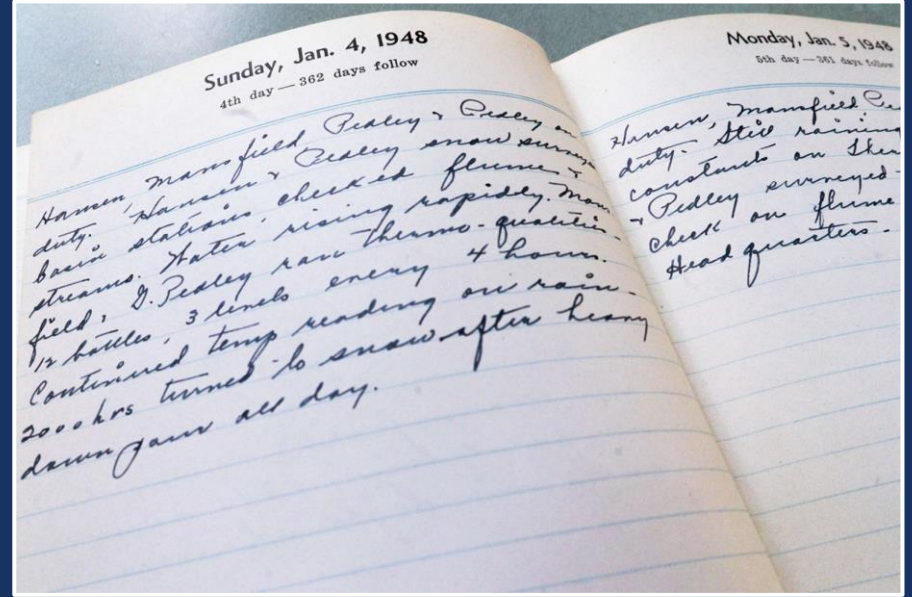 Sunday, Jan. 4, 1948
4th day — 362 days follow
Hansen, Mansfield Pedley & Pedley on
duty. Hansen & Pedley snow surveyed
basin stations, checked flumes &
streams. Water rising rapidly. Mans-
field, D. Pedley ran thermo-qualities-
12 bottles, 3 levels every 4 hours.
Continued temp reading on rain-
2000 hrs turned to snow after heavy
down pour all day.
Monday, Jan. 5, 1948
5th day — 361 days follow
Hansen, Mansfield
duty. Still raining
constants on
& Pedley surveyed-
check on flume
Head quarters-